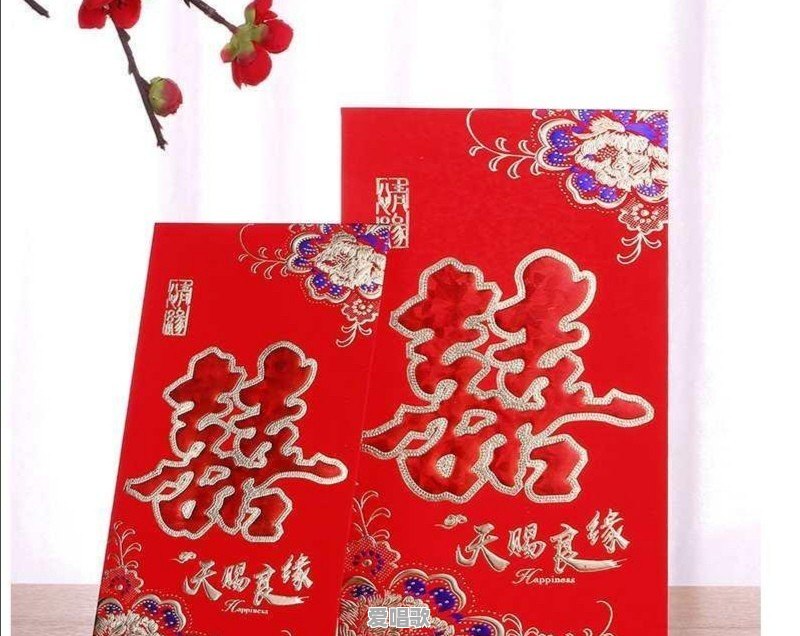 情缘
囍
天赐良缘
Happiness
情缘
囍
天赐良缘
Happiness
爱唱歌